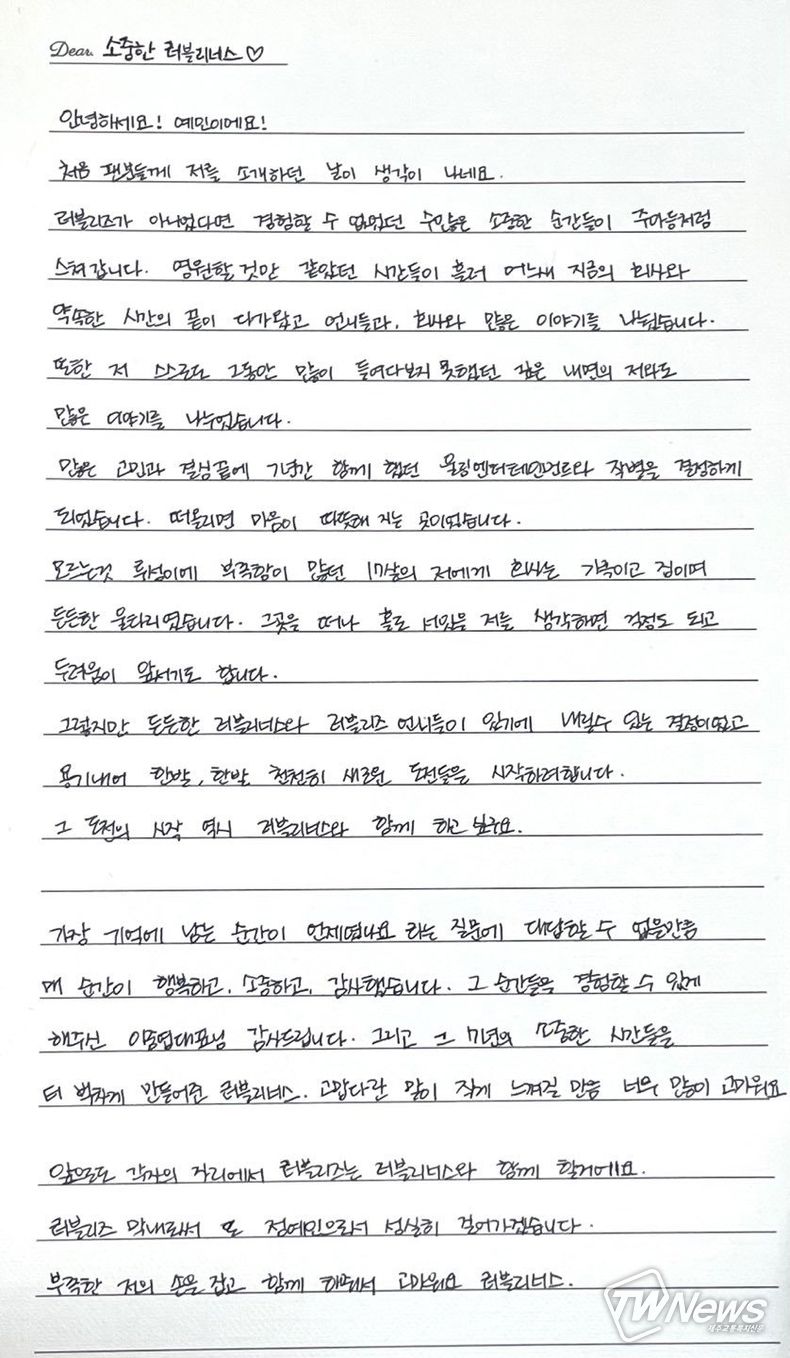 Dear. 소중한 러블리너스♡
안녕하세요! 예인이에요!
처음 팬분들께 저를 소개하던 날이 생각이 나네요.
러블리즈가 아니었다면 경험할 수 없었던 수많은 소중한 순간들이 주마등처럼
스쳐갑니다. 영원할 것만 같았던 시간들이 흘러 어느새 지금의 회사와
약속한 시간의 끝이 다가왔고 언니들과, 회사와 많은 이야기를 나눴습니다.
또한 저 스스로도 그동안 많이 들여다보지 못했던 깊은 내면의 저와도
많은 이야기를 나누었습니다.
많은 고민과 결심끝에 7년간 함께 했던 울림엔터테인먼트와 작별을 결정하게
되었습니다. 떠올리면 마음이 따뜻해 지는 곳이었습니다.
모르는것 투성이에 부족함이 많던 17살의 저에게 회사는 가족이고 집이며
든든한 울타리였습니다. 그곳을 떠나 홀로 서있을 저를 생각하면 걱정도 되고
두려움이 앞서기도 합니다.
그렇지만 든든한 러블리너스와 러블리즈 언니들이 있기에 내릴수 있는 결정이었고
용기내어 한발, 한발 천천히 새로운 도전들을 시작하려합니다.
그 도전의 시작 역시 러블리너스와 함께 하고 싶구요.
가장 기억에 남는 순간이 언제였나요 라는 질문에 대답할 수 없을만큼
매 순간이 행복하고, 소중하고, 감사했습니다. 그 순간들을 경험할 수 있게
해주신 이중엽대표님 감사드립니다. 그리고 그 7년의 소중한 시간들을
더 벅차게 만들어준 러블리너스. 고맙다란 말이 작게 느껴질 만큼 너무 많이 고마워요
앞으로도 각자의 자리에서 러블리즈는 러블리너스와 함께 할거에요.
러블리즈 막내로서 또 정예인으로서 성실히 걸어가겠습니다.
부족한 저의 손을 잡고 함께 해줘서 고마워요 러블리너스.
TWNews
제주교통복지신문